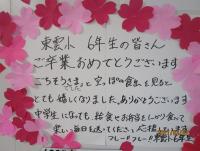 東雲小 6年生の皆さん
ご卒業、おめでとうございます
ごちそうさまでしたと空っぽの食缶を見ると
とても嬉しくなりました。ありがとうございます
中学生になっても、給食やお弁当をしっかり食べて
楽しい毎日を送ってください。応援しています
フレーフレー東雲小6年生